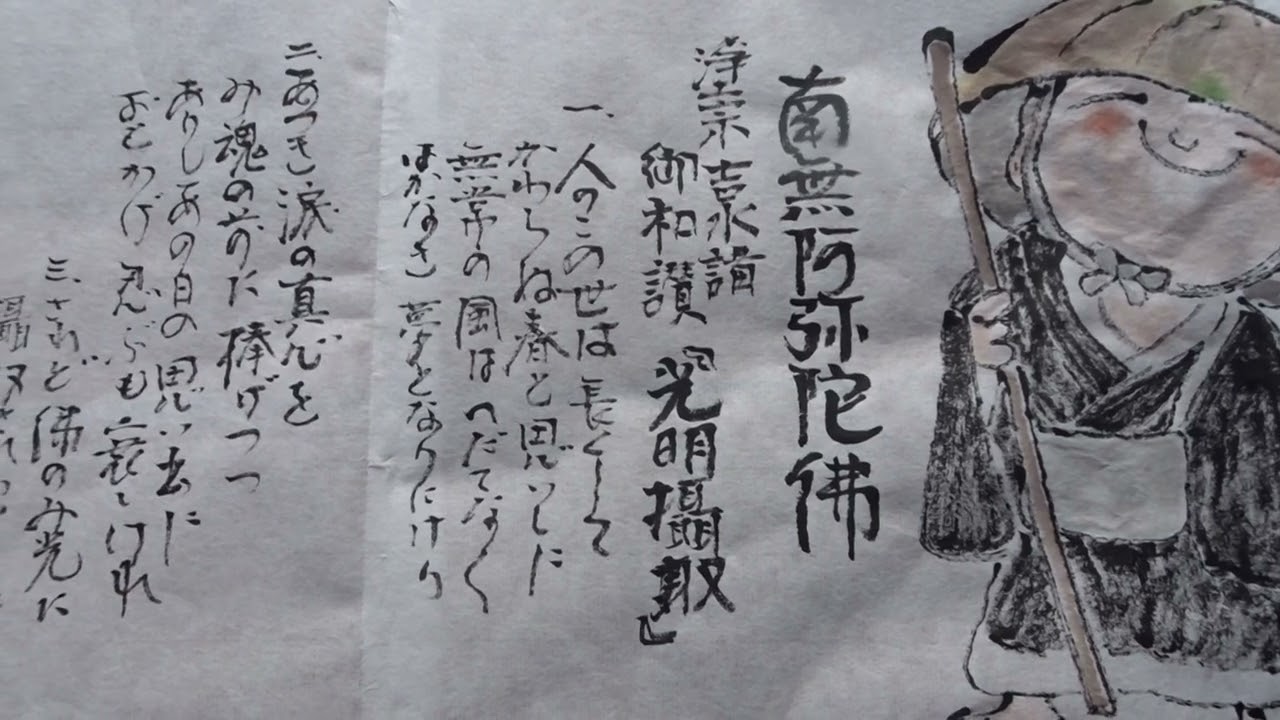 南無阿弥陀佛
浄宗吉水講
御和讃『光明攝取』
一、人のこの世は長くして
かわらぬ春と思いしに
無常の風はへだてなく
はかなき夢となりにけり
二、あつき涙の真心を
み魂の前に捧げつつ
ありしあの日の思い出に
おもかげ忍ぶも哀しけれ
三、されど佛のみ光に
攝取され